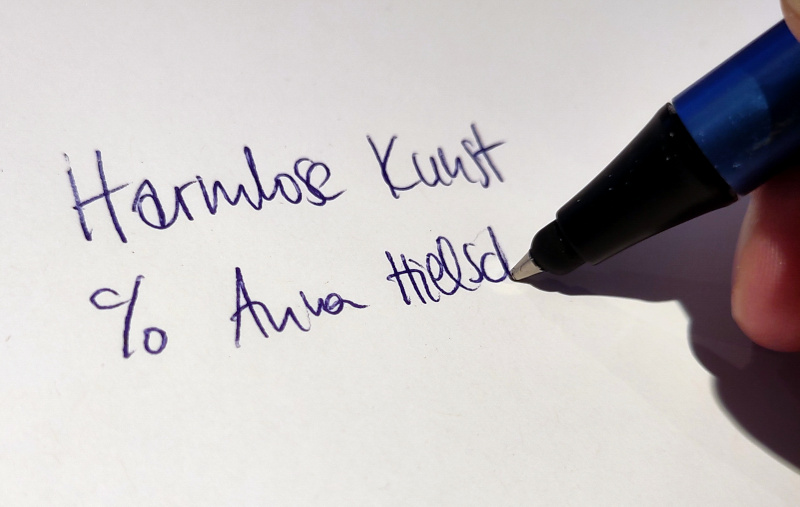 Harmlose Kunst
c/o Anna Hielsc